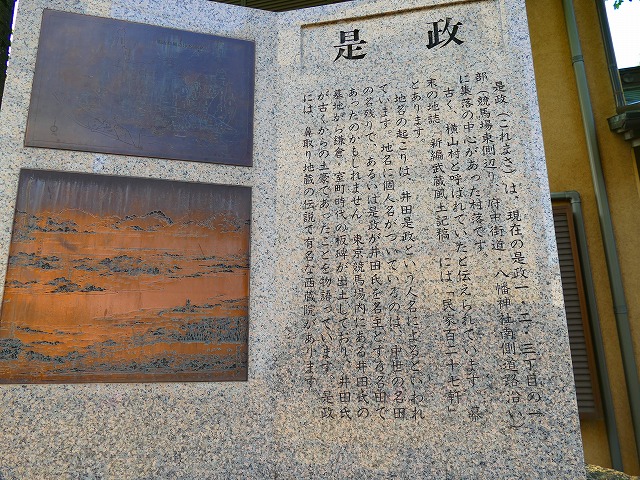 是政
是政(これまさ)は、現在の是政一、二、三丁目の一
部(競馬場東側辺り、府中街道・八幡神社南側道路沿い)
に集落の中心があった村落です。
古く、横山村と呼ばれていたと伝えられています。幕
末の地誌『新編武蔵風土記稿』には「民家百二十七軒」
とあります。
地名の起こりは、井田是政という人名によるといわれ
ています。地名に個人名がついているのは、中世の名田
の名残りで、あるいは是政が井田氏を名主とする名田で
あったのかもしれません。東京競馬場内にある井田氏の
墓地から鎌倉、室町時代の板碑が出土しており、井田氏
が古くからの土豪であったことを物語っています。是政
には、鼻取り地蔵の伝説で有名な西蔵院があります。